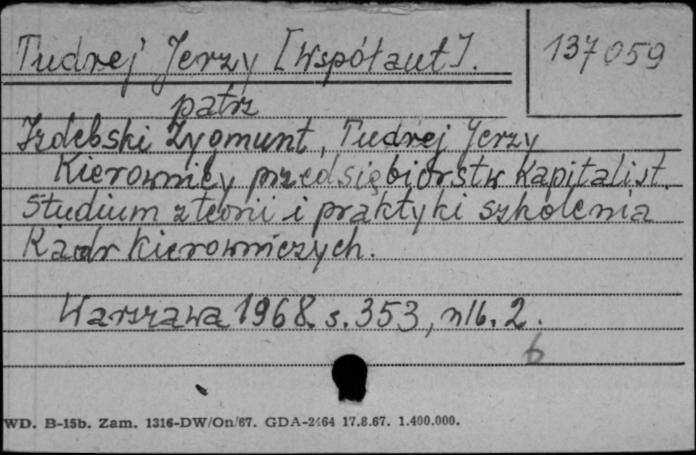 Tudrej Jerzy [Współaut]. 137059
patrz
Izdebski Zygmunt, Tudrej Jerzy
Kierownicy przedsiębiorstw kapitalist.
Studium z teorii i praktyki szkolenia
Kadr kierowniczych.
Warszawa 1968. s. 353, nlb. 2.
b
WD. B-15b. Zam. 1316-DW/On/67. GDA-2464 17.8.67. 1.400.000.